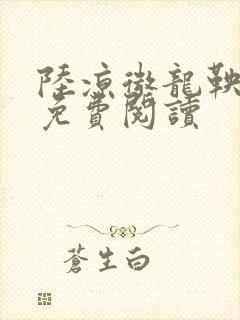 陸凉徹龍鞅
免費閱讀
蒼生白